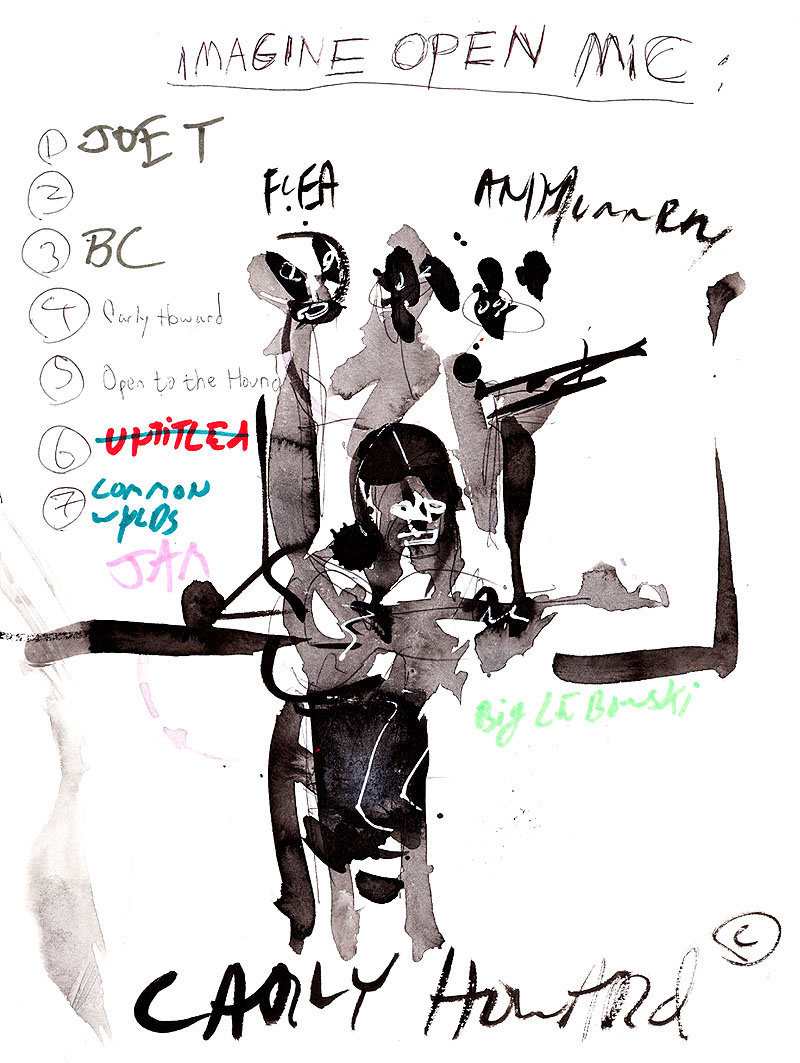 IMAGINE OPEN MIC:
① JOE T
②
③ BC
④ Carly Howard
⑤ Open to the Hound
⑥ UNTITLED
⑦ COMMON
WYLDS
JAM
FLEA
BIG LEBOWSKI
CARLY HOWARD
©